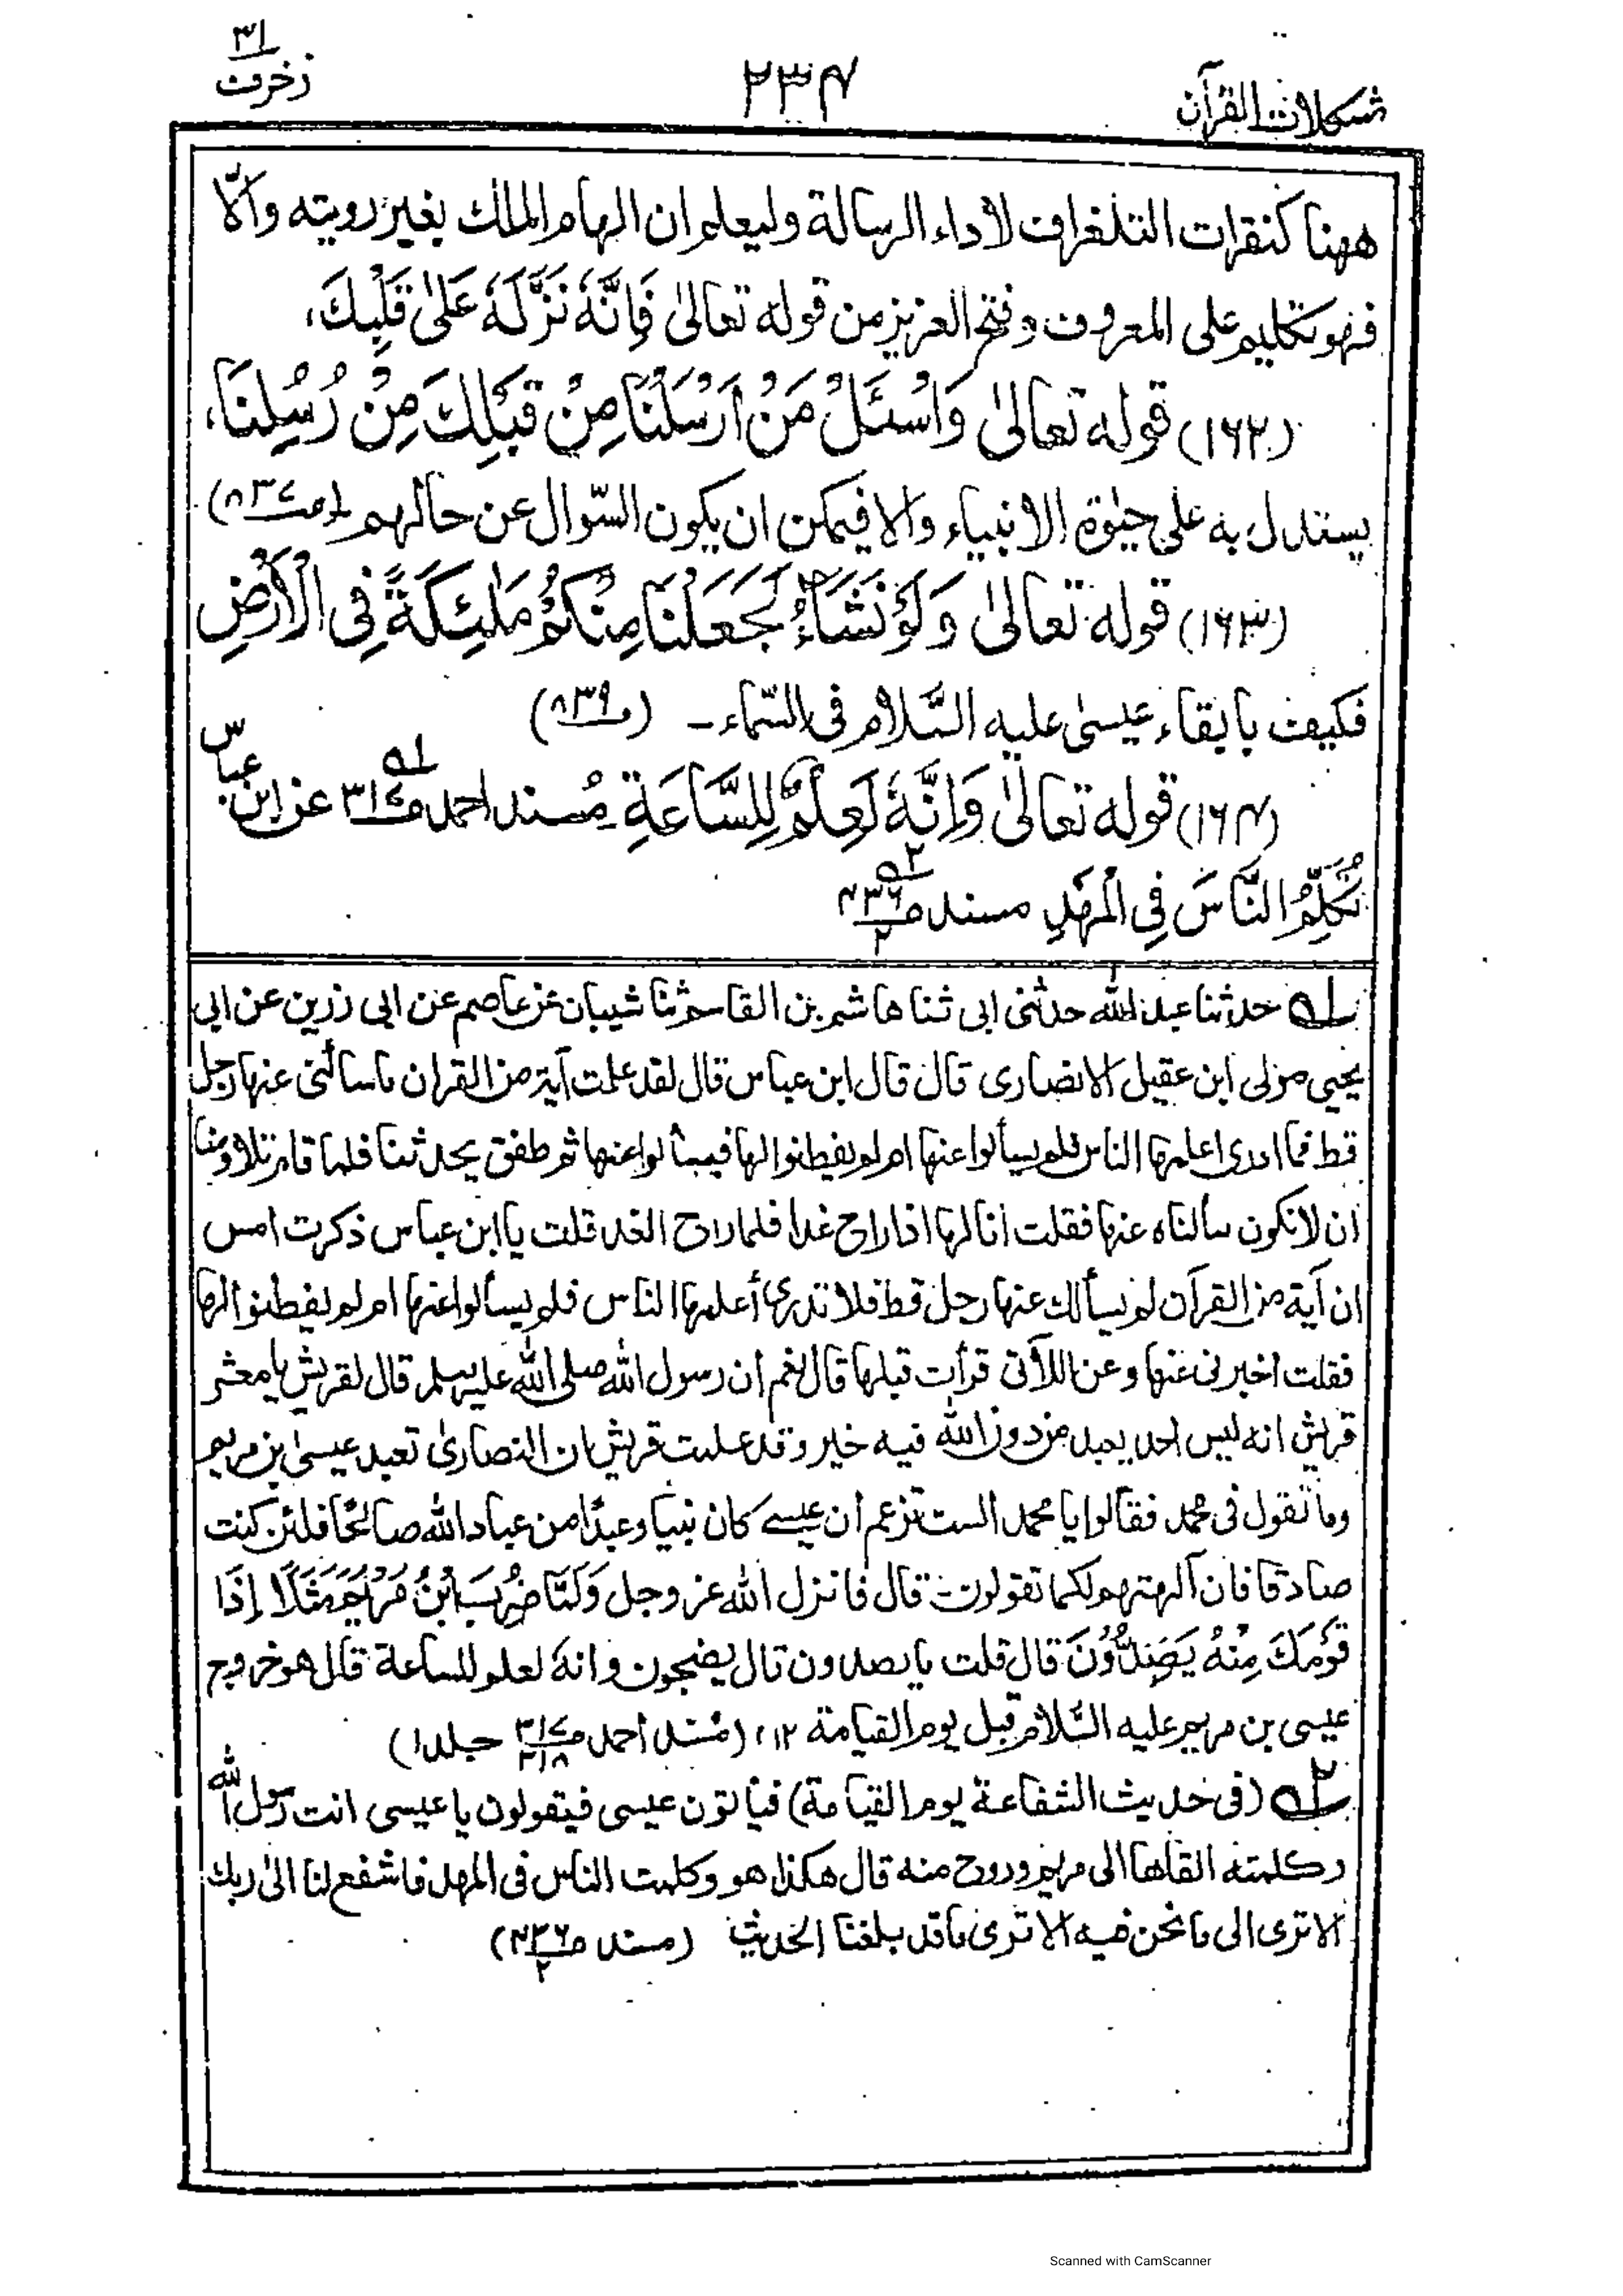 مشکلات القرآن ۲۳۴ ۳۱ زخرف
ههنا کنقرات التلغراف لاداء الرسالة ولیعلم ان الهام الملك بغیر رویته والّا
فهو تکلیم علی المعروف وفتح العزیز من قوله تعالیٰ فَاِنَّهٗ نَزَّلَهٗ عَلیٰ قَلْبِكَ،
(۱۶۲) قوله تعالیٰ وَاسْئَلْ مَنْ اَرْسَلْنَا مِنْ قَبْلِكَ مِنْ رُّسُلِنَا،
یستدل به علی حیٰوة الانبیاء والا فیمکن ان یکون السّوال عن حالهم (ص۸۳۷)
(۱۶۳) قوله تعالیٰ وَلَوْ نَشَآءُ لَجَعَلْنَا مِنْکُمْ مَلٰئِکَةً فِی الْاَرْضِ
فکیف بابقاء عیسیٰ علیه السَّلام فی السّماء ـ (ص۸۳۹)
(۱۶۴) قوله تعالیٰ وَاِنَّهٗ لَعِلْمٌ لِّلسَّاعَةِ مُسند احمد ص۳۱۷ ؎۱ عن ابن عباس
تُکَلِّمُ النَّاسَ فِی الْمَهْدِ مسند ص۴۳۶/۲ ؎۲
؎۱ حدثنا عبد الله حدثنی ابی ثنا هاشم بن القاسم ثنا شیبان عن عاصم عن ابی رزین عن ابی
یحیی مولی ابن عقیل الانصاری قال قال ابن عباس قال لقد علمت آیة من القران ما سألنی عنها رجل
قط فما ادری اعلمها الناس فلم یسألوا عنها ام لم یفطنوا لها فیسألوا عنها ثم طفق یحدثنا فلما قام تلاومنا
ان لا نکون سألناه عنها فقلت انا لها اذا راح غدا فلما راح الغد قلت یا ابن عباس ذکرت امس
ان آیة من القرآن لم یسألك عنها رجل قط فلا تدری أعلمها الناس فلم یسألوا عنها ام لم یفطنوا لها
فقلت اخبرنی عنها وعن اللآتی قرأت قبلها قال نعم ان رسول الله صلی الله علیه وسلم قال لقریش یا معشر
قریش انه لیس احد یعبد من دون الله فیه خیر وقد علمت قریش ان النصاریٰ تعبد عیسیٰ بن مریم
وما تقول فی محمد فقالوا یا محمد الست تزعم ان عیسے کان نبیا وعبدًا من عباد الله صالحًا فلئن کنت
صادقا فان آلهتهم لکما تقولون قال فانزل الله عز وجل وَلَمَّا ضُرِبَ ابْنُ مَرْیَمَ مَثَلًا اِذَا
قَوْمُكَ مِنْهُ یَصِدُّوْنَ قال قلت ما یصدون قال یضجون وانهٗ لعلم للساعة قال هو خروج
عیسی بن مریم علیه السَّلام قبل یوم القیامة ۱۲، (مُسند أحمد ص۳۱۷/۳۱۸ جلد۱)
؎۲ (فی حدیث الشفاعة یوم القیامة) فیأتون عیسی فیقولون یا عیسی انت رسول الله
وکلمته القاها الی مریم وروح منه قال هکذا هو وکلمت الناس فی المهد فاشفع لنا الیٰ ربك
الا تری الی ما نحن فیه الا تری ما قد بلغنا الحدیث (مسند ص۴۳۶/۲)
Scanned with CamScanner